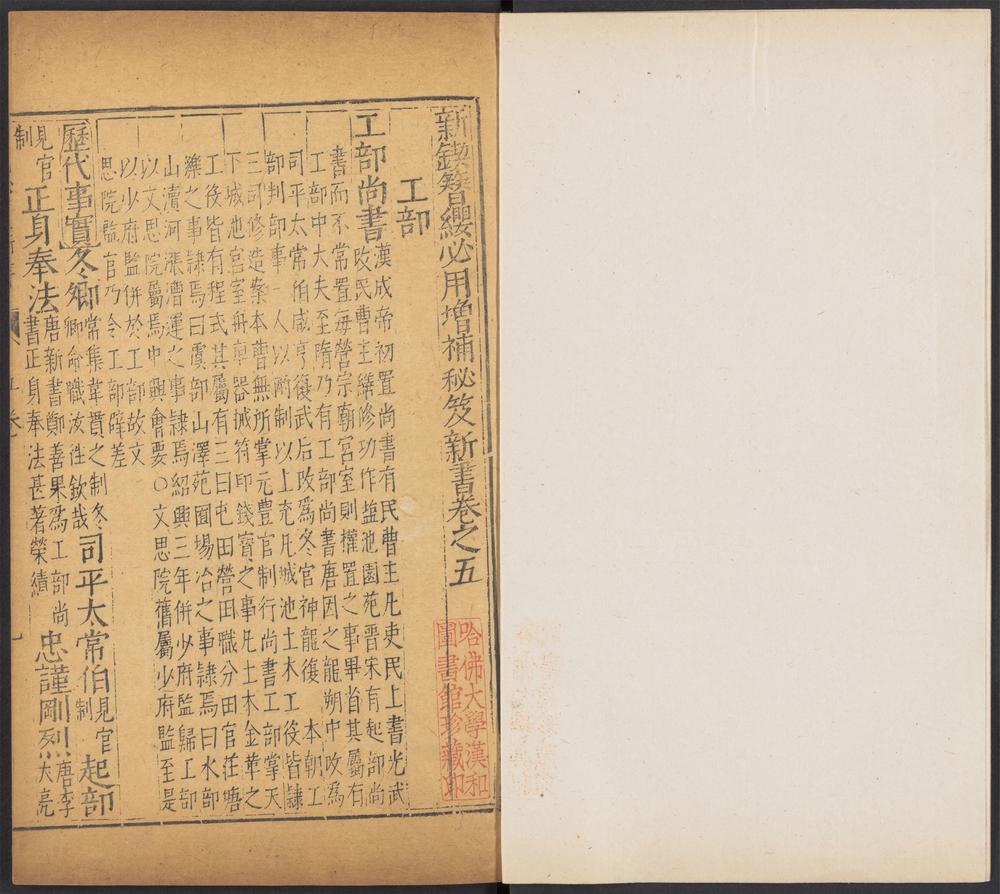 新鍥簪纓必用增補秘笈新書卷之五
哈佛大學漢和
圖書館珍藏印
工部
工部尚書
漢成帝初置尚書有民曹主凡吏民上書光武
改民曹主繕修功作塩池園苑晋宋有起部尚
書而不常置每營宗廟宮室則權置之事畢省其屬有
工部中大夫至隋乃有工部尚書唐因之龍朔中改為
司平太常伯咸亨復武后改為冬官神龍復 本朝工
部判部事一人以兩制以上充凡城池土木工役皆隸
三司修造案本曹無所掌元豊官制行尚書工部掌天
下城池宮室舟車器械符印錢寳之事凡土木金革之
工役皆有程式其屬有三曰屯田營田職分田官莊塘
濼之事隸焉曰虞部山澤苑囿場冶之事隸焉曰水部
山瀆河漲漕運之事隸焉紹興三年併少府監歸工部
以文思院屬焉中興會要○文思院舊屬少府監至是
以少府監併於工部故文
思院監官乃令工部辟差
歷代事實
冬卿
常集韋貫之制冬
卿命職汝往欽哉
司平太常伯
見官
制
起部
見官
制
正身奉法
唐新書鄭善果為工部尚
書正身奉法甚著榮績
忠謹剛烈
唐李
大亮